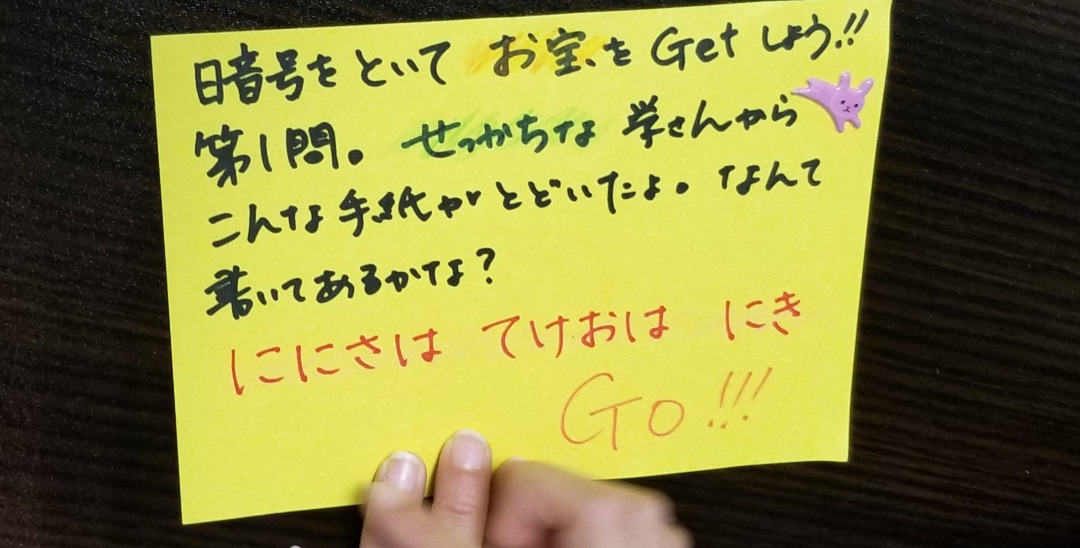 日音号をといて お宝をGetしよう!!
第1問。 せっかちな 学さんから
こんな手紙がとどいたよ。なんて
書いてあるかな?
ににさは てけおは にき
Go!!!